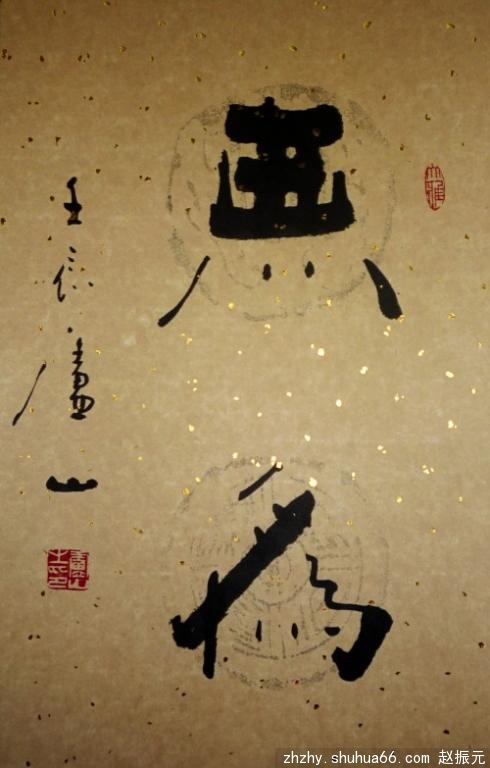 大雅
無為
壬辰廬山
zhzhy.shuhua66.com 赵振元